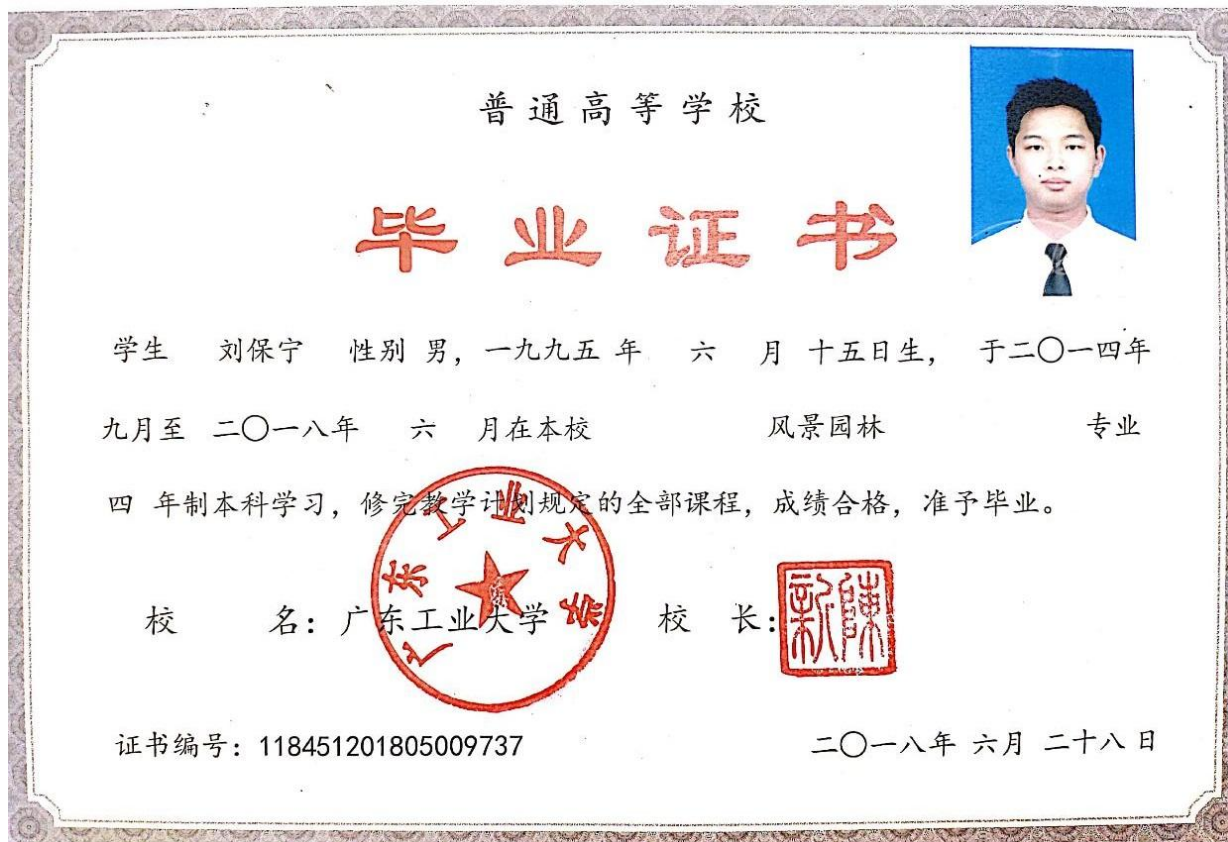 普通高等学校
毕业证书
学生 刘保宁 性别 男，一九九五 年 六 月 十五日生， 于二〇一四年
九月至 二〇一八年 六 月在本校 风景园林 专业
四 年制本科学习，修完教学计划规定的全部课程，成绩合格，准予毕业。
广东工业大学
校 名：广东工业大学 校 长：
陳新
证书编号：118451201805009737 二〇一八年 六月 二十八 日